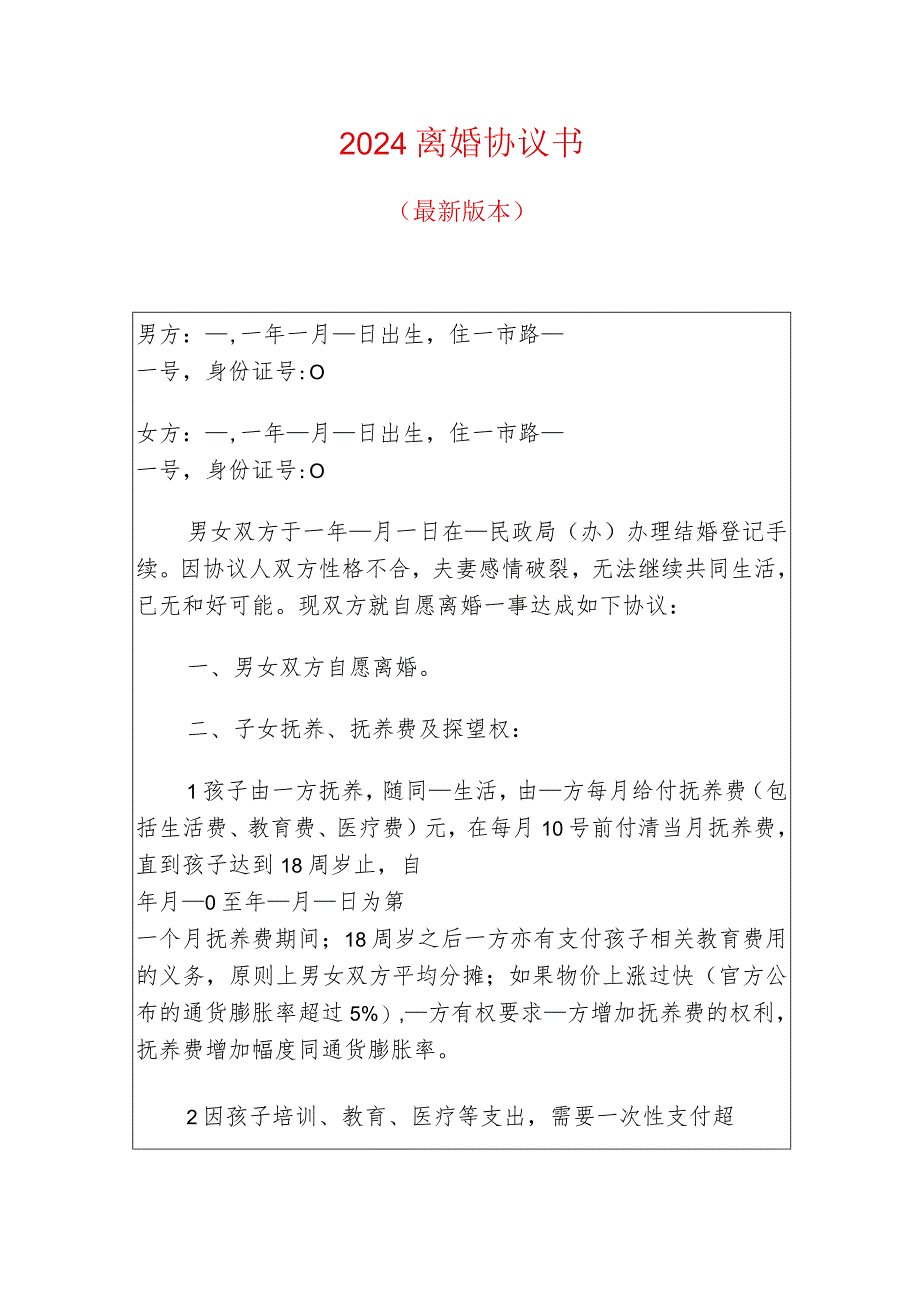 2024离婚协议书
（最新版本）
男方：—,一年一月—日出生，住一市路—
一号，身份证号:O
女方：—,一年—月—日出生，住一市路—
一号，身份证号:O
男女双方于一年—月一日在—民政局（办）办理结婚登记手
续。因协议人双方性格不合，夫妻感情破裂，无法继续共同生活，
已无和好可能。现双方就自愿离婚一事达成如下协议：
一、男女双方自愿离婚。
二、子女抚养、抚养费及探望权：
1孩子由一方抚养，随同—生活，由—方每月给付抚养费（包
括生活费、教育费、医疗费）元，在每月10号前付清当月抚养费，
直到孩子达到18周岁止，自
年月—0至年—月—日为第
一个月抚养费期间；18周岁之后一方亦有支付孩子相关教育费用
的义务，原则上男女双方平均分摊；如果物价上涨过快（官方公
布的通货膨胀率超过5%）,—方有权要求—方增加抚养费的权利，
抚养费增加幅度同通货膨胀率。
2因孩子培训、教育、医疗等支出，需要一次性支付超